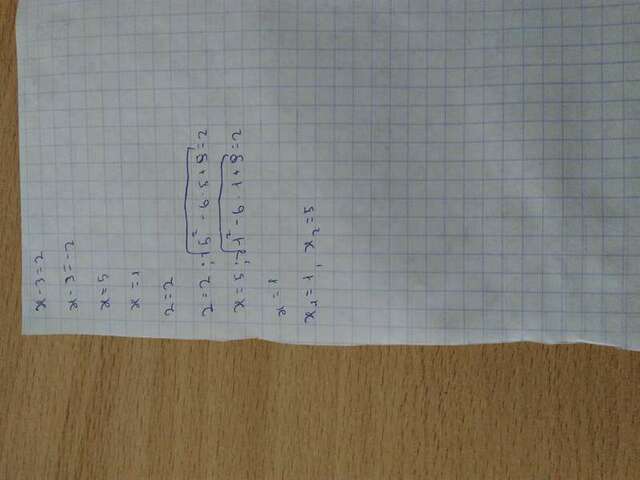 x-3=2
x-3=-2
x=5
x=1
2=2
2=2; √5²-6·5+9=2
x=5; √1²-6·1+9=2
x=1
x₁=1, x₂=5